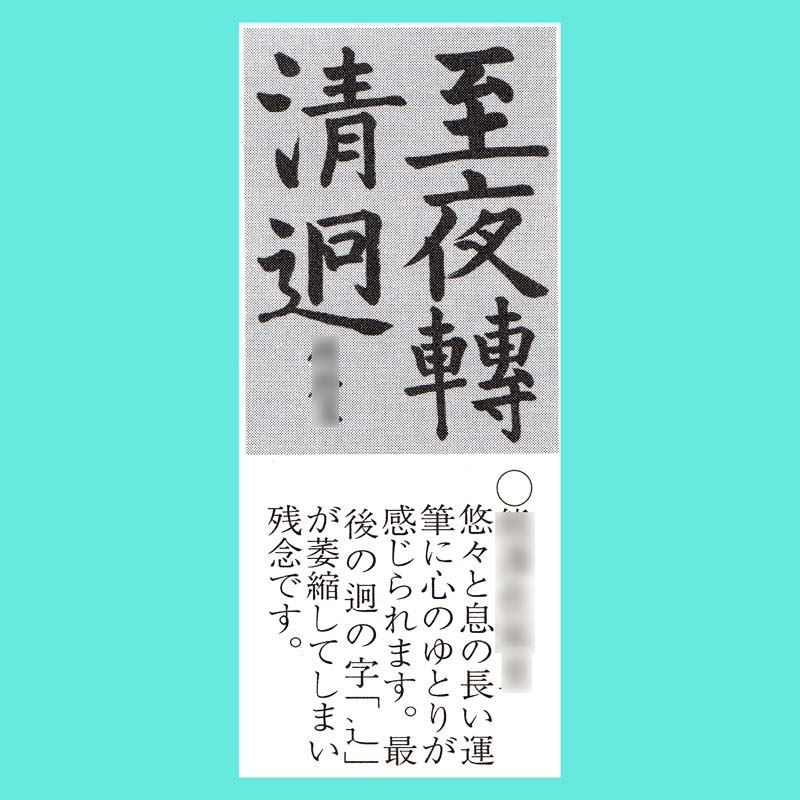 至夜轉
清迥
○
悠々と息の長い運
筆に心のゆとりが
感じられます。最
後の迥の字「辶」
が萎縮してしまい
残念です。